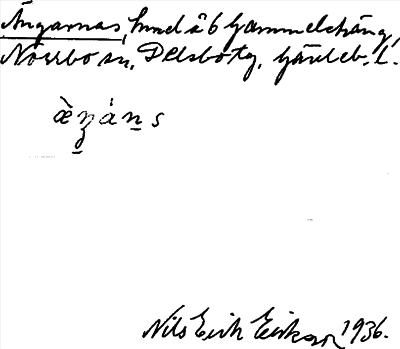 Ängarnas, hmd å b Gammelsträng,
Norrbo sn, Delsbo tg, Gävleb. l.
æ̀ŋáṉs
Nils Erik Erikson 1936.